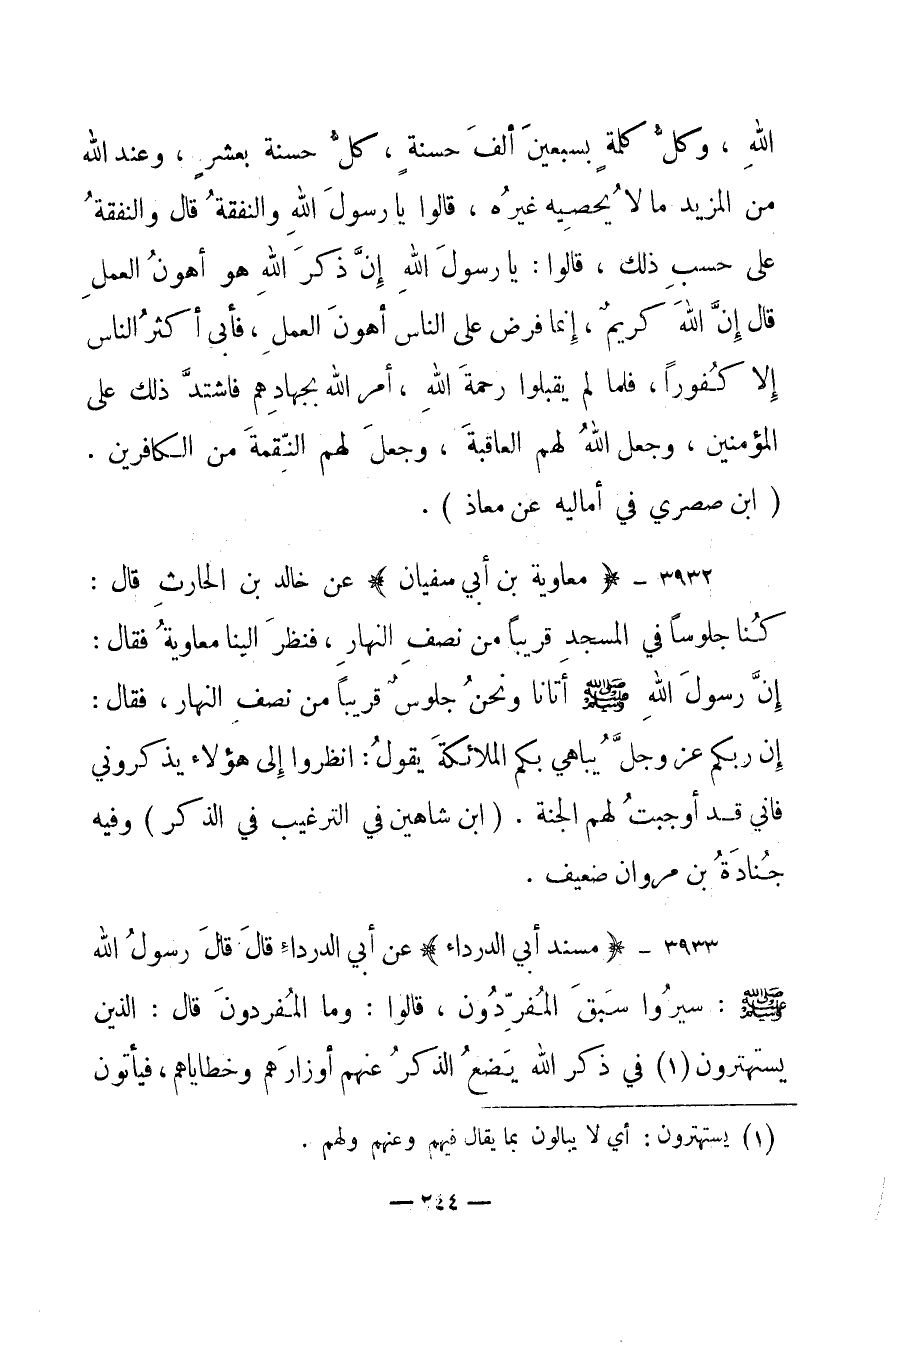 اللهِ ، وكلُّ كلمةٍ بسبعينَ ألفَ حسنةٍ ، كلُّ حسنة بعشرٍ ، وعند الله
من المزيد ما لا يُحصيه غيرُه ، قالوا يا رسولَ اللهِ والنفقةُ قال والنفقةُ
على حسبِ ذلك ، قالوا : يا رسولَ اللهِ إنَّ ذكرَ اللهِ هو أهونُ العملِ
قال إنَّ اللهَ كريمٌ ، إنما فرض على الناس أهونَ العملِ ، فأبى أكثرُ الناس
إلا كُفوراً ، فلما لم يقبلوا رحمةَ اللهِ ، أمر الله بجهادِهم فاشتدَّ ذلك على
المؤمنين ، وجعل اللهُ لهم العاقبةَ ، وجعلَ لهم النِّقمةَ من الكافرين .
( ابن صصري في أماليه عن معاذ ) .
٣٩٣٢ ـ ﴿ معاوية بن أبي سفيان ﴾ عن خالد بن الحارثِ قال :
كُنا جلوساً في المسجدِ قريباً من نصفِ النهارِ ، فنظرَ الينا معاويةُ فقال :
إنَّ رسولَ اللهِ ﷺ أتانا ونحنُ جلوسٌ قريباً من نصفِ النهار ، فقال :
إن ربكم عز وجلَّ يُباهي بكم الملائكةَ يقولُ : انظروا إلى هؤلاء يذكروني
فاني قد أوجبتُ لهم الجنة . ( ابن شاهين في الترغيب في الذكر ) وفيه
جُنادَةُ بن مروان ضعيف .
٣٩٣٣ ـ ﴿ مسند أبي الدرداء ﴾ عن أبي الدرداءِ قالَ قالَ رسولُ الله
ﷺ : سيرُوا سَبقَ المُفرِّدُون ، قالوا : وما المُفردونَ قال : الذين
يستهترون (١) في ذكر الله يَضعُ الذكرُ عنهم أوزارَهم وخطاياهم ، فيأتون
(١) يستهترون : أي لا يبالون بما يقال فيهم وعنهم ولهم .
— ٢٤٤ —